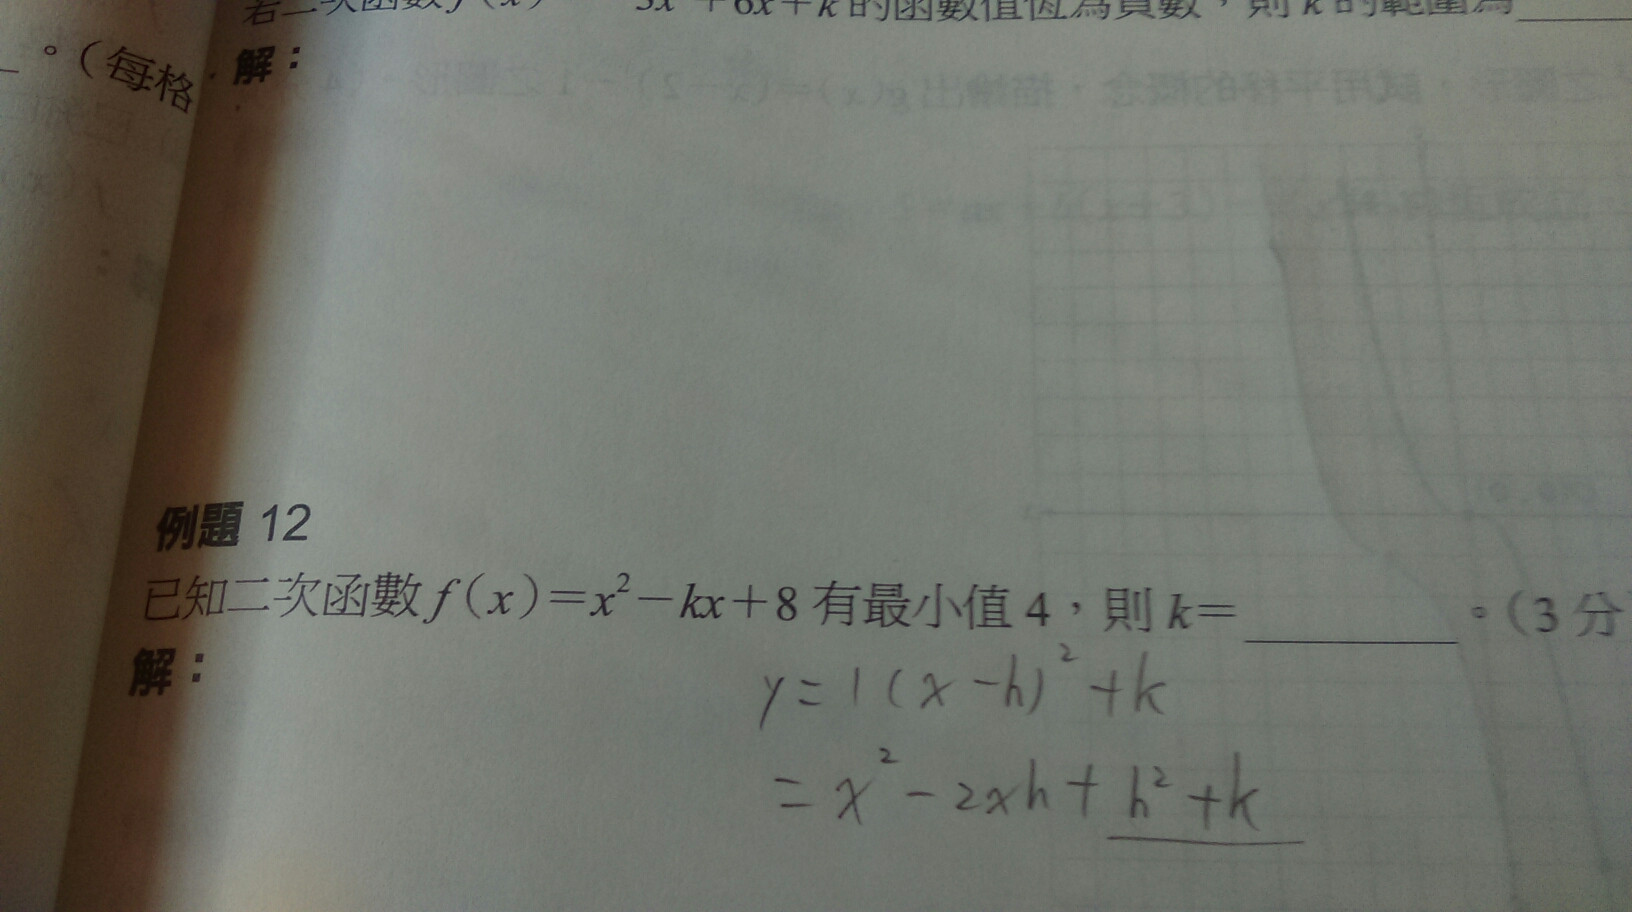 若二次函數 f(x) 3x²+6x+k 的函數值恆為負數，則 k 的範圍為
。（每格
解：
例題 12
已知二次函數 f(x)=x²-kx+8 有最小值 4，則 k=________。（3 分
解：
y=1(x-h)²+k
=x²-2xh+h²+k